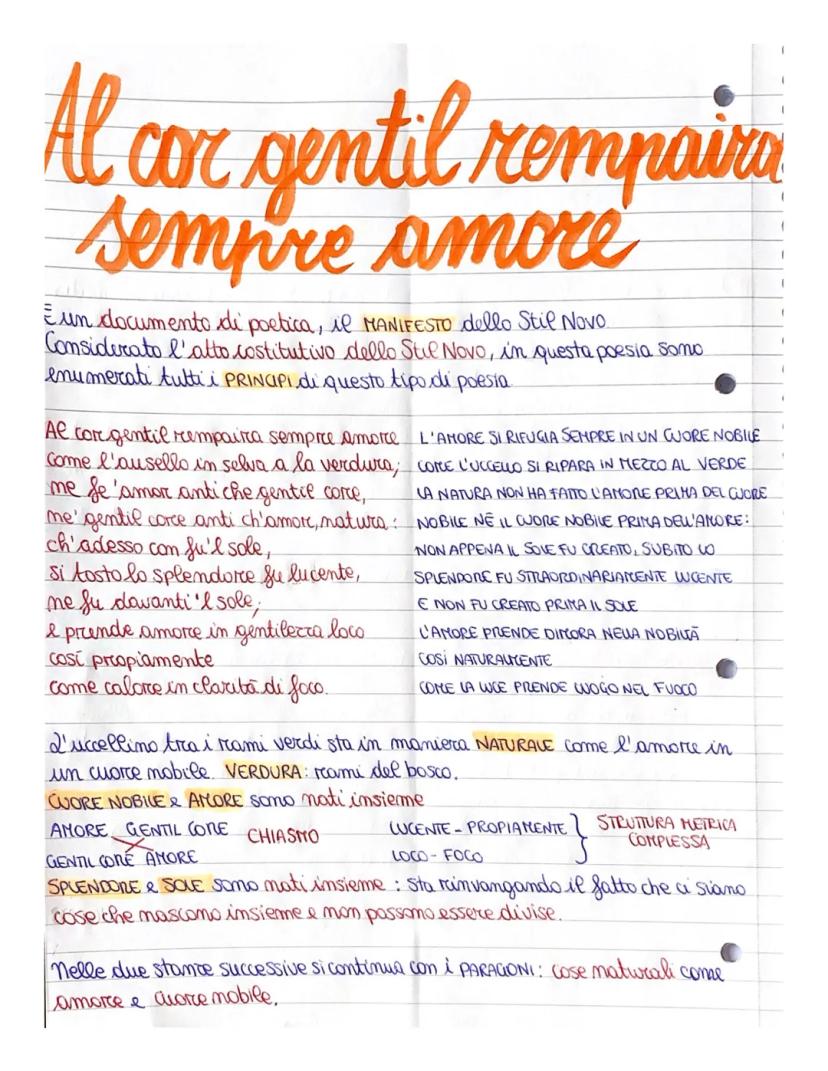 Al cor gentil rempaira
sempre amore
È un documento di poetica, il MANIFESTO dello Stil Novo
Considerato l'atto costitutivo dello Stil Novo, in questa poesia sono
enumerati tutti i PRINCIPI di questo tipo di poesia
Al cor gentil rempaira sempre amore
come l'ausello in selva a la verdura;
me fe' amor anti che gentil core,
ne' gentil core anti ch'amor, natura:
ch'adesso con fu 'l sole,
sì tosto lo splendore fu lucente,
ne fu davanti 'l sole;
e prende amore in gentilezza loco
così propiamente
come calore in clarità di foco.
L'AMORE SI RIFUGIA SEMPRE IN UN CUORE NOBILE
COME L'UCCELLO SI RIPARA IN MEZZO AL VERDE
LA NATURA NON HA FATTO L'AMORE PRIMA DEL CUORE
NOBILE NÈ IL CUORE NOBILE PRIMA DELL'AMORE:
NON APPENA IL SOLE FU CREATO, SUBITO LO
SPLENDORE FU STRAORDINARIAMENTE LUCENTE
E NON FU CREATO PRIMA IL SOLE
L'AMORE PRENDE DIMORA NELLA NOBILTÀ
COSÌ NATURALMENTE
COME LA LUCE PRENDE LUOGO NEL FUOCO
L'uccellino tra i rami verdi sta in maniera NATURALE come l'amore in
un cuore nobile. VERDURA: rami del bosco.
CUORE NOBILE e AMORE sono nati insieme
AMORE GENTIL CORE CHIASMO LUCENTE - PROPIAMENTE } STRUTTURA METRICA
GENTIL CORE AMORE LOCO - FOCO COMPLESSA
SPLENDORE e SOLE sono nati insieme: sta rinvangando il fatto che ci siano
cose che nascono insieme e non possono essere divise.
Nelle due stanze successive si continua con i PARAGONI: cose naturali come
amore e cuore nobile.